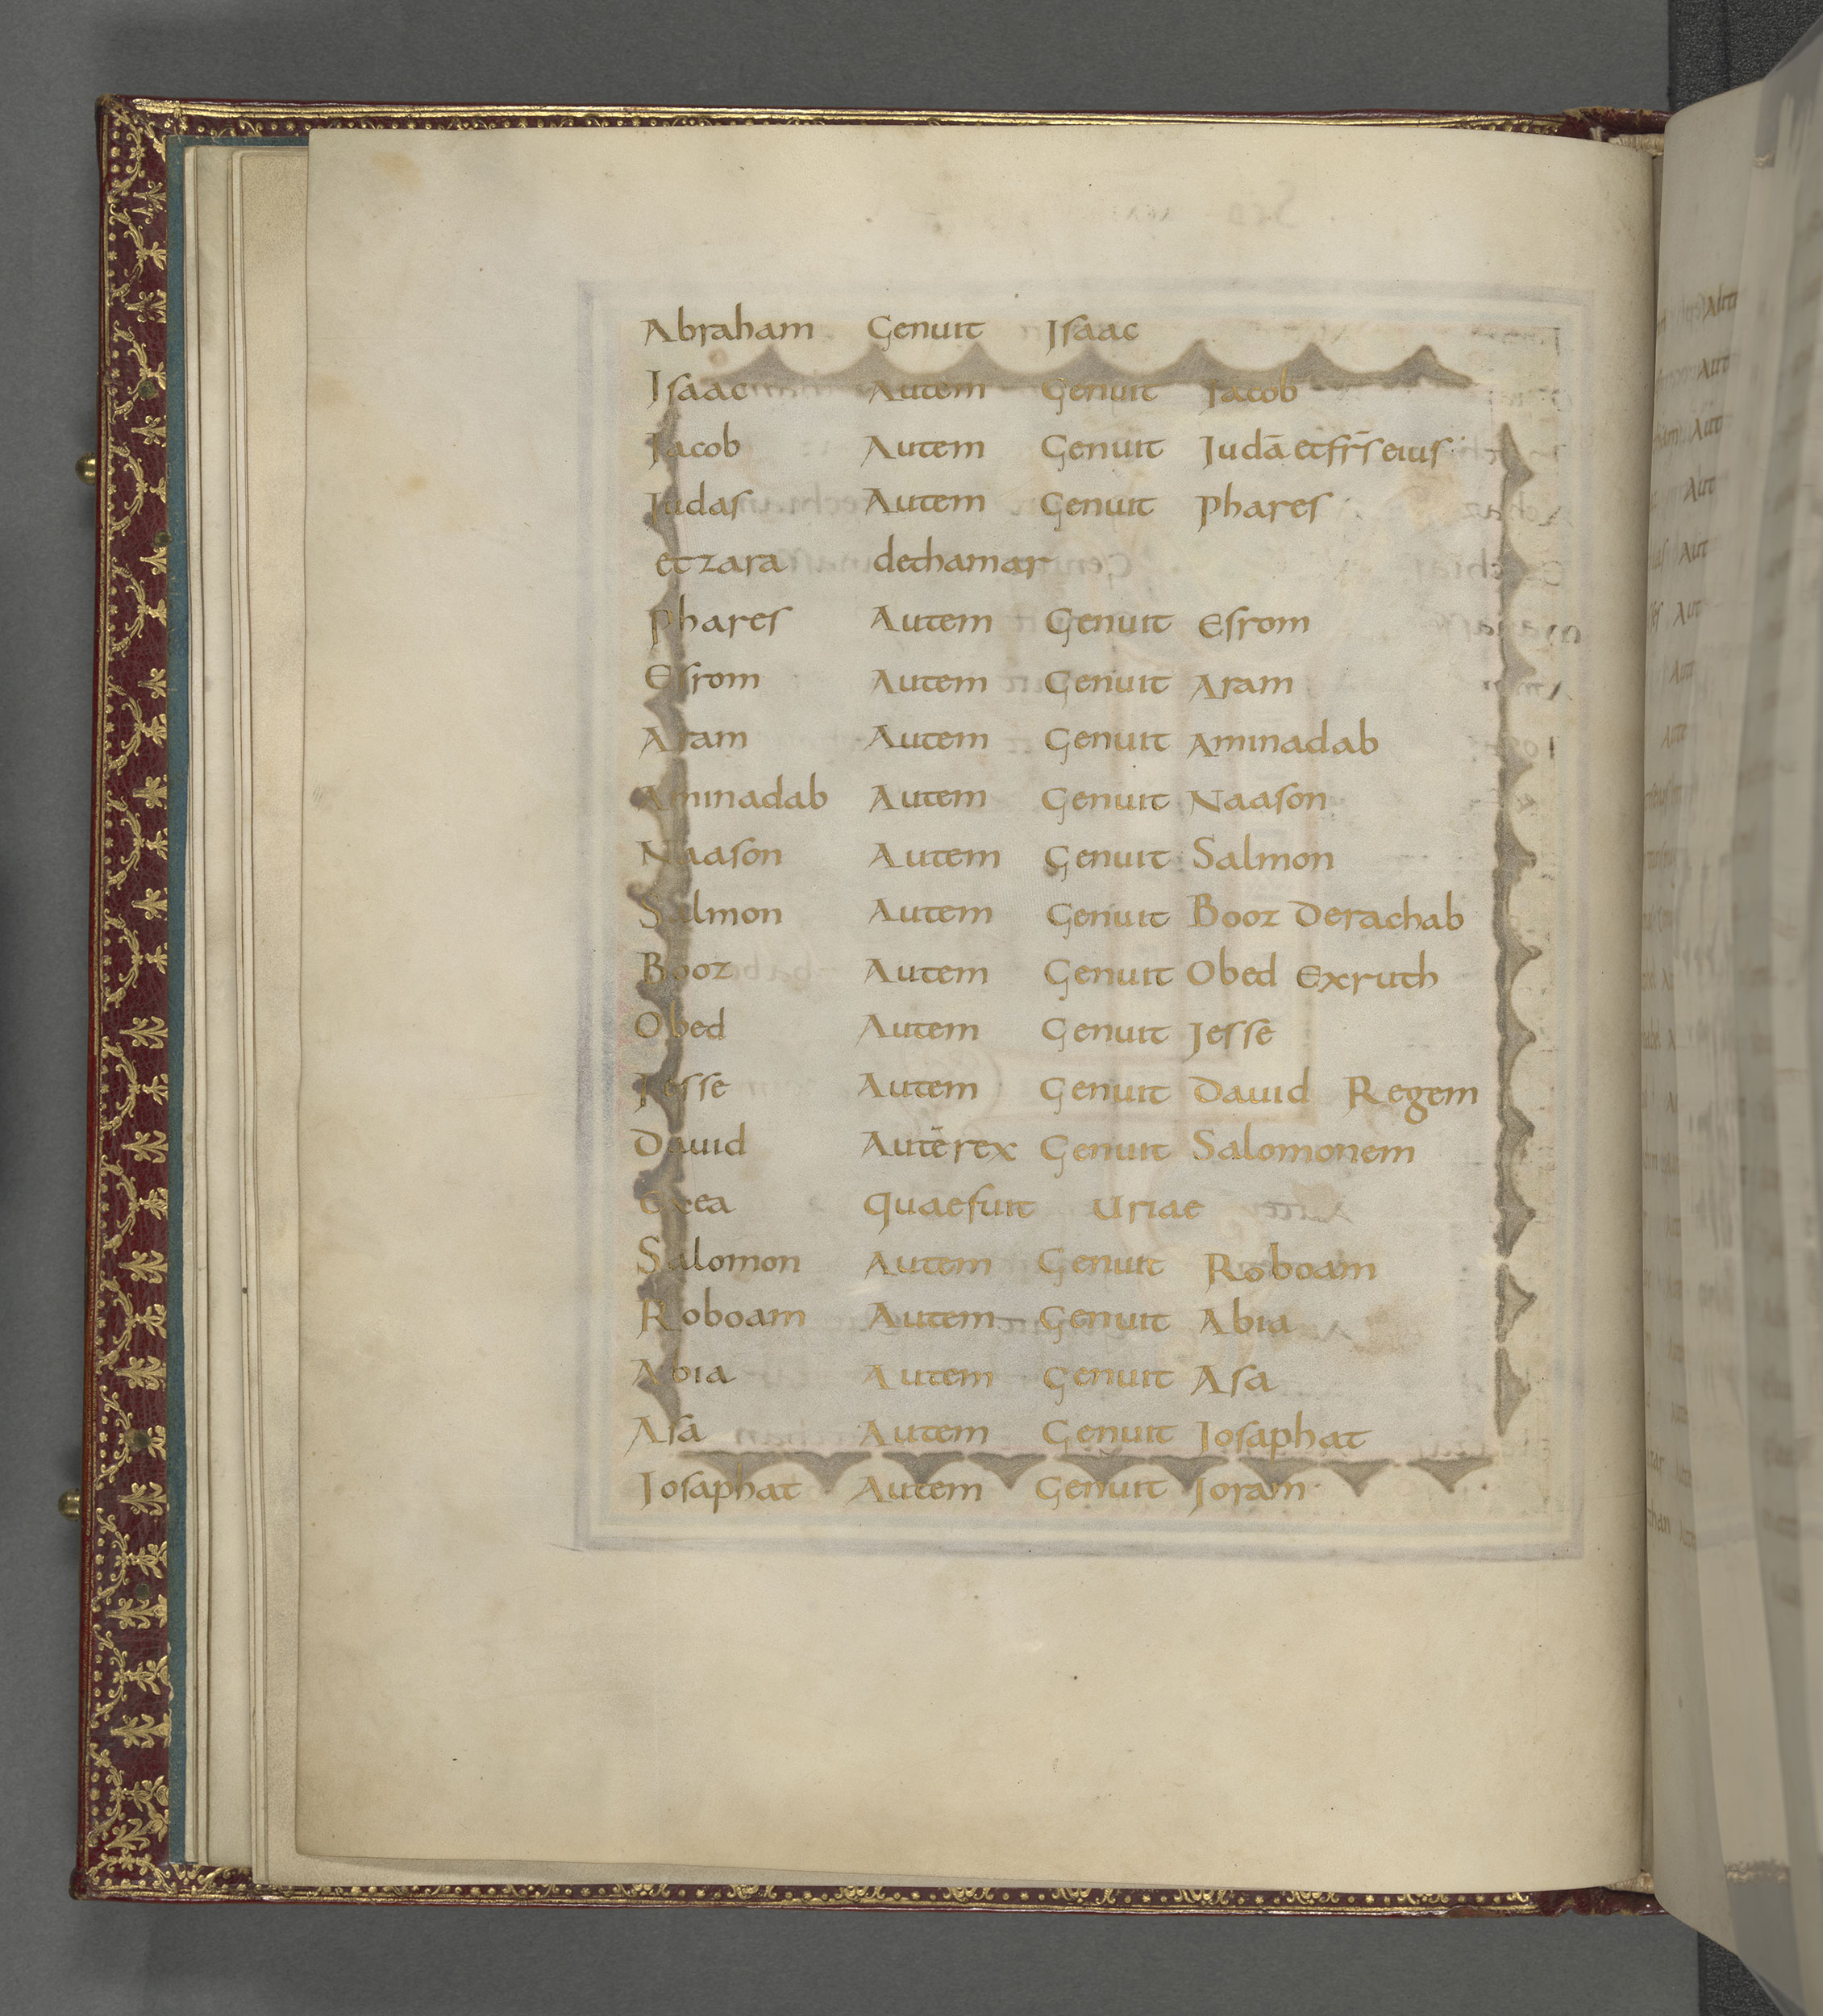 Abraham Genuit Isaac
Isaac Autem Genuit Jacob
Jacob Autem Genuit Judā et fr̄s eius
Judas Autem Genuit phares
et zara dethamar
phares Autem Genuit Esrom
Esrom Autem Genuit Aram
Aram Autem Genuit Aminadab
Aminadab Autem Genuit Naason
Naason Autem Genuit Salmon
Salmon Autem Genuit Booz Derachab
Booz Autem Genuit Obed Exruth
Obed Autem Genuit Jesse
Jesse Autem Genuit David Regem
David Autē rex Genuit Salomonem
Exea quae fuit Uriae
Salomon Autem Genuit Roboam
Roboam Autem Genuit Abia
Abia Autem Genuit Asa
Asa Autem Genuit Josaphat
Josaphat Autem Genuit Joram